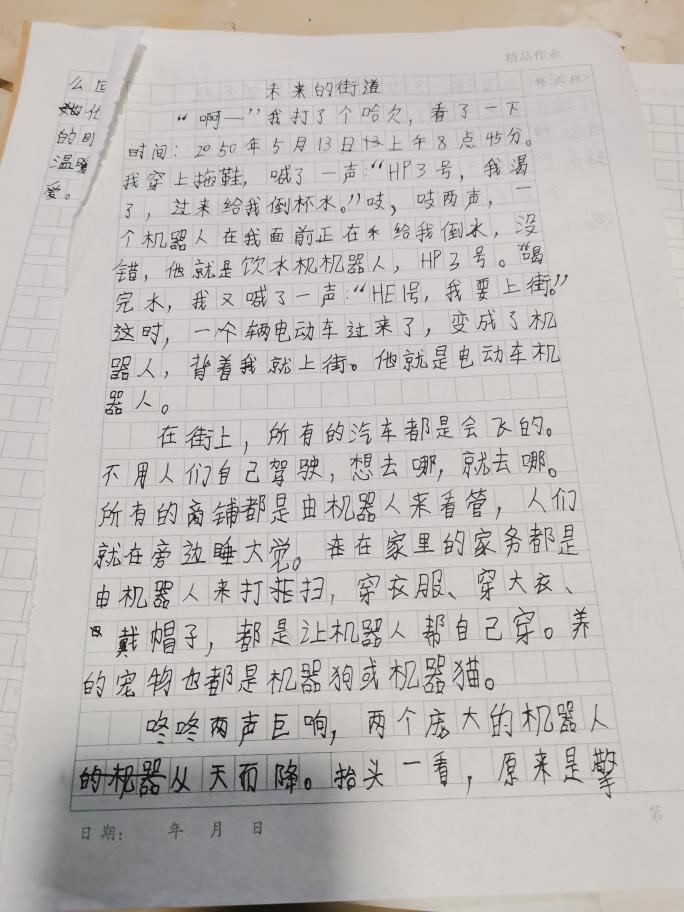 精品作业
么回
她什
的明
温暖
爱。
未来的街道
“啊—”我打了个哈欠，看了一下
时间：2050年5月13日上午8点45分。
我穿上拖鞋，喊了一声：“HP3号，我渴
了，过来给我倒杯水。”吱，吱两声，一
个机器人在我面前正在给我倒水，没
错，他就是饮水机机器人，HP3号。“喝
完水，我又喊了一声：“HE1号，我要上街。”
这时，一个辆电动车过来了，变成了机
器人，背着我就上街。他就是电动车机
器人。
在街上，所有的汽车都是会飞的。
不用人们自己驾驶，想去哪，就去哪。
所有的商铺都是由机器人来看管，人们
就在旁边睡大觉。在家里的家务都是
由机器人来打扫，穿衣服、穿大衣、
戴帽子，都是让机器人帮自己穿。养
的宠物也都是机器狗或机器猫。
咚咚两声巨响，两个庞大的机器人
从天而降。抬头一看，原来是擎
日期： 年 月 日
第